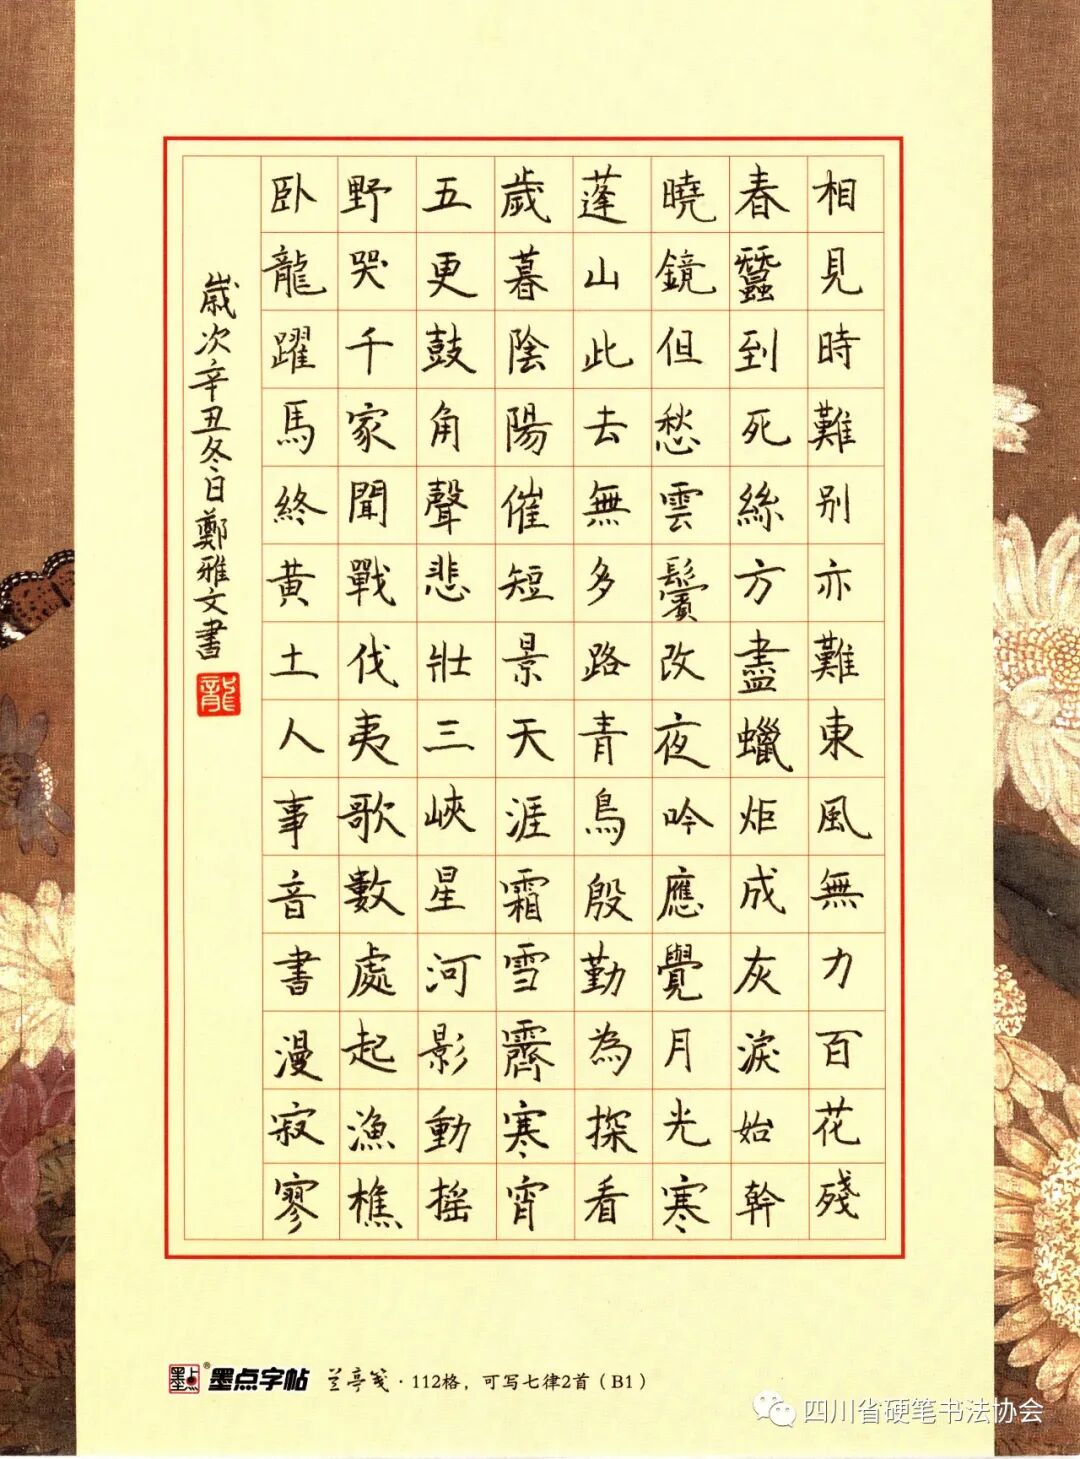 相見時難别亦難東風無力百花殘
春蠶到死絲方盡蠟炬成灰淚始幹
曉鏡但愁雲鬢改夜吟應覺月光寒
蓬山此去無多路青鳥殷勤為探看
歲暮陰陽催短景天涯霜雪霽寒宵
五更鼓角聲悲壯三峽星河影動摇
野哭千家聞戰伐夷歌數處起漁樵
卧龍躍馬終黄土人事音書漫寂寥
歲次辛丑冬日鄭雅文書
龍
墨点
墨点字帖
兰亭笺·112格，可写七律2首（B1）
四川省硬笔书法协会